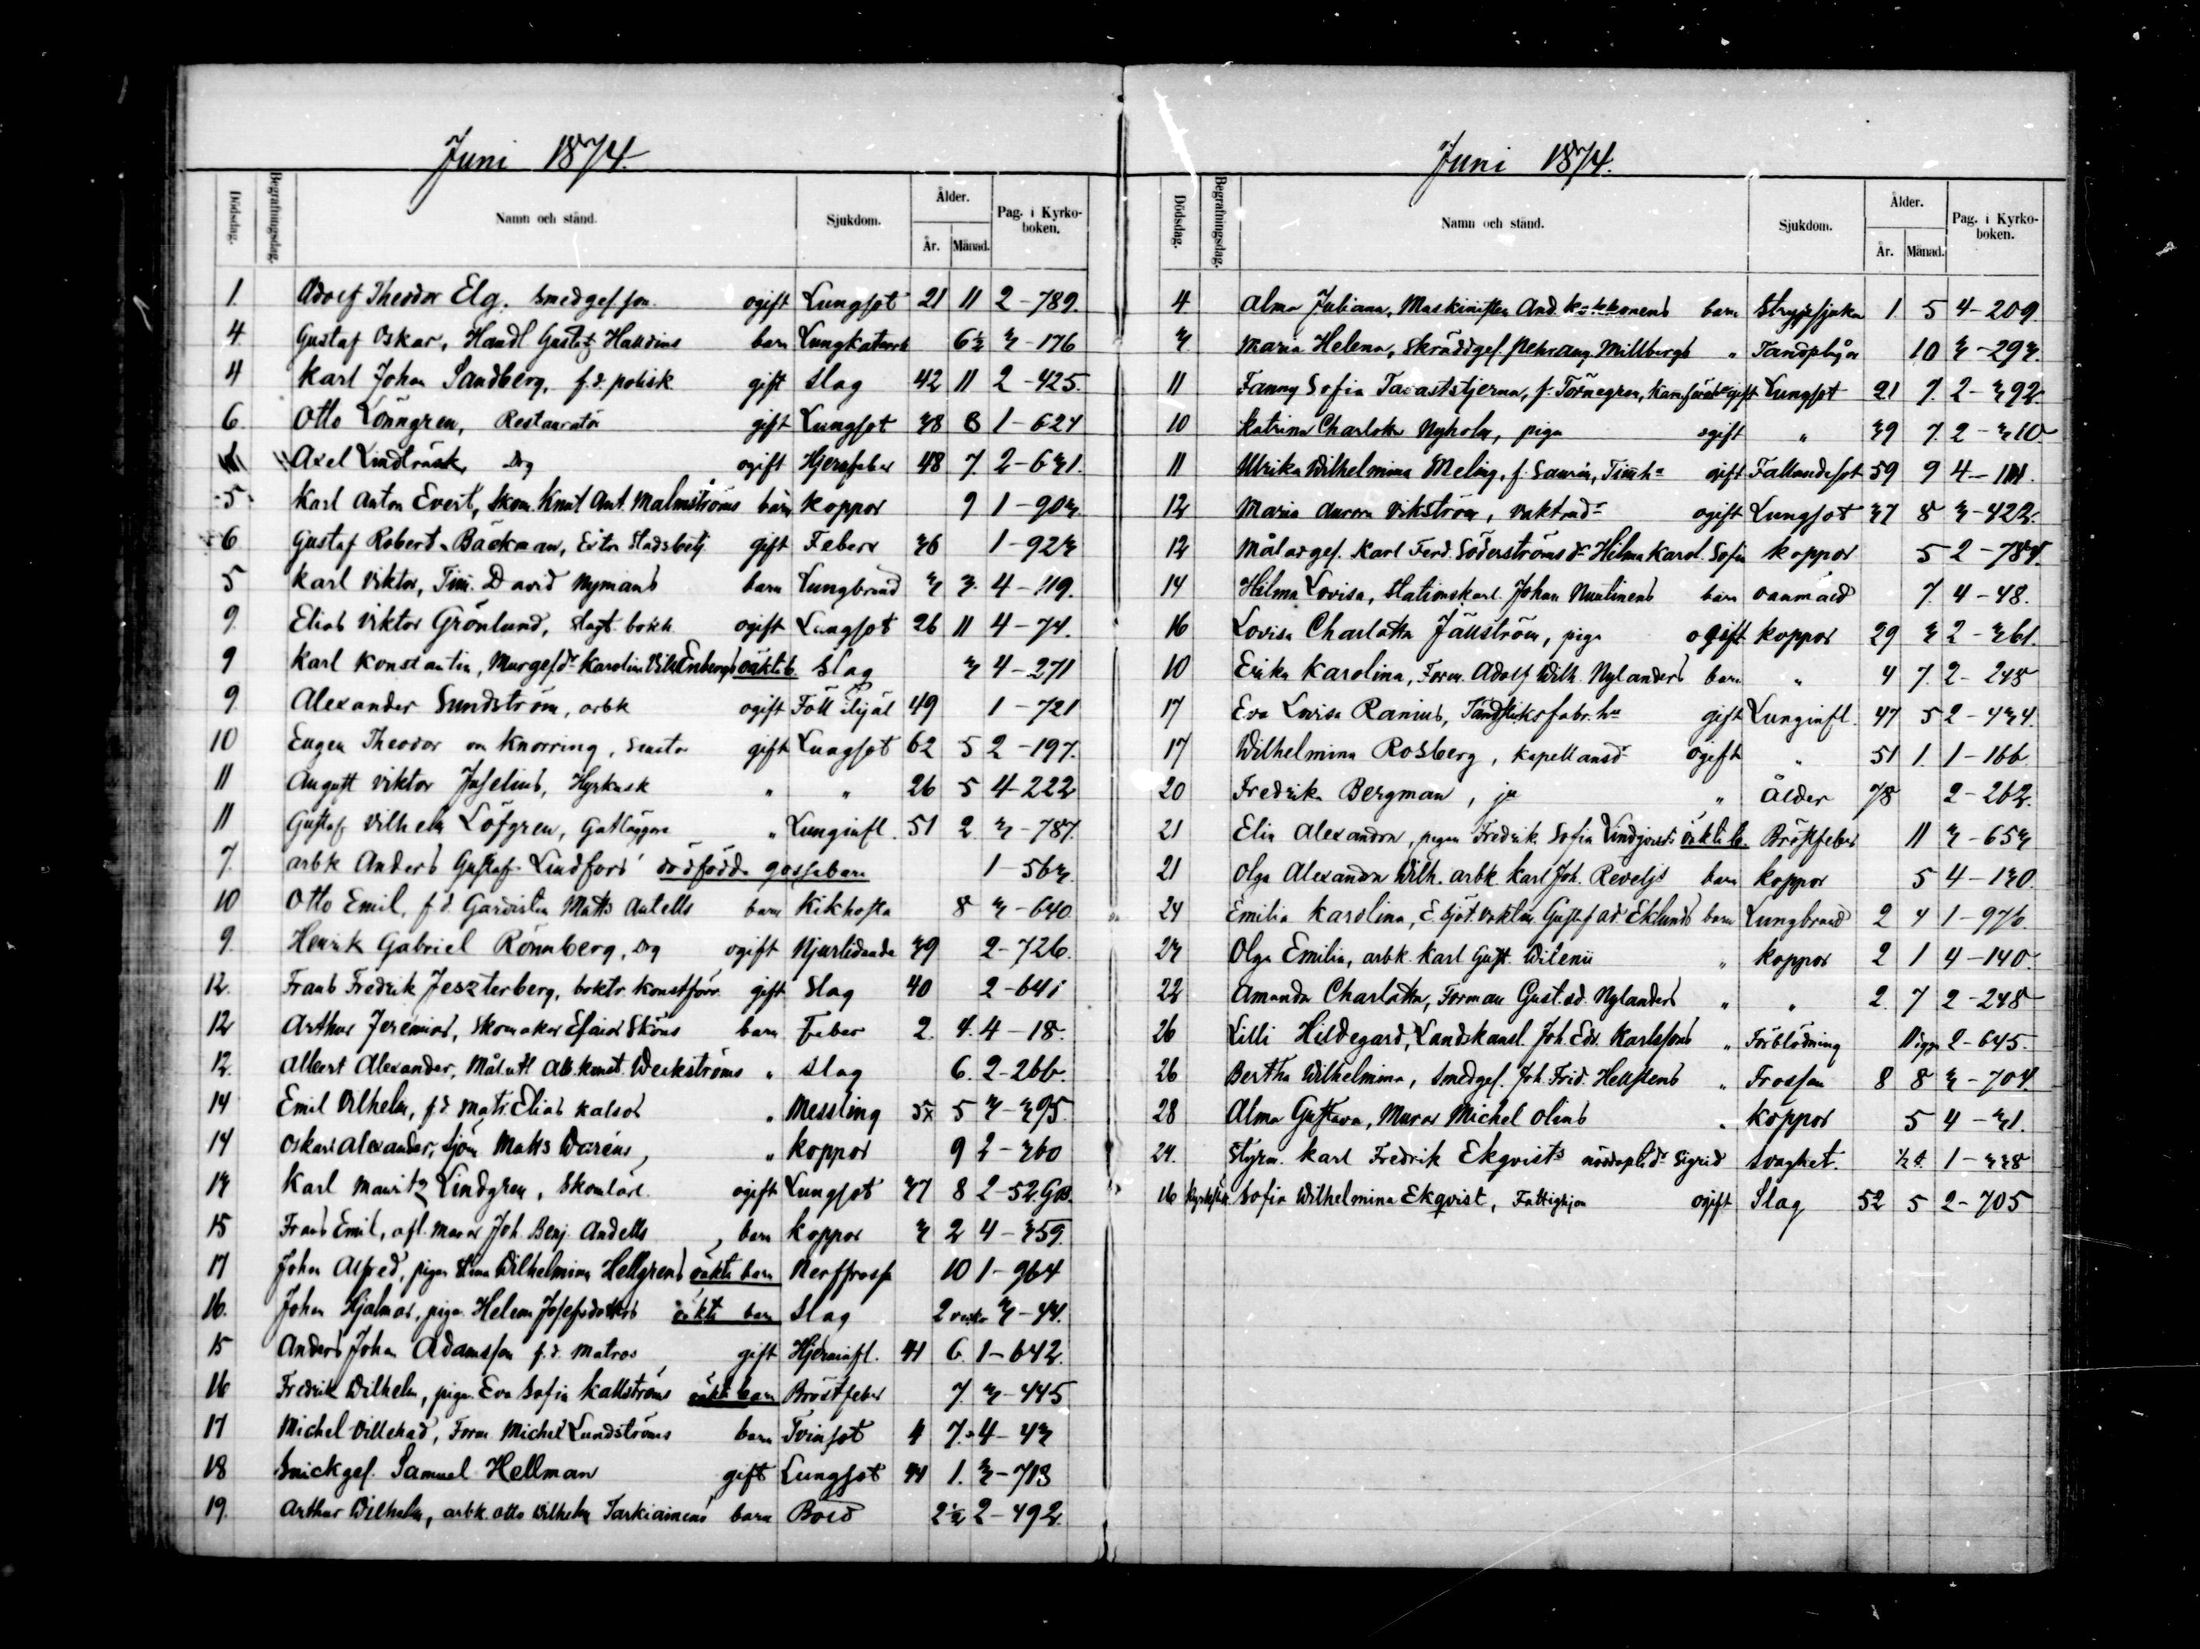 Juni 1874.
Dödsdag. Begrafningsdag. Namn och stånd. Sjukdom. Ålder. År. Månad. Pag. i Kyrko-boken.
1. Adolf Theodor Elg. Smedgef. son. ogift Lungsot 21 11 2-789.
4. Gustaf Oskar, Handl Gustaf Haudins barn Lungkatarrh 6½ 3-176
4 Karl Johan Sandberg, f.d. polisk gift Slag 42 11 2-425.
6. Otto Lönngren, Restauratör gift Lungsot 38 8 1-624
Axel Lindtrask, Drg ogift Hjernfeber 48 7 2-631.
5 Karl Anton Evert, Skom. Knut Ant. Malmströms barn Koppor 9 1-903.
6 Gustaf Robert Bäckman, Extra Stadsbetj gift Feber 36 1-923
5 Karl Viktor, Tim. David Nymans barn Lungbrand 3 3. 4-119.
9. Elias Viktor Grönlund, ogift Lungsot 26 11 4-74.
9 Karl Konstantin, Murgesd:r Karolin Wilh Enbergs oäkta b. Slag 3 4-271
9. Alexander Sundström, arbk ogift Föll ihjäl 49 1-721
10 Eugen Theodor von Knorring, gift Lungsot 62 5 2-197.
11 August Viktor Juselius, Hyrkusk " " 26 5 4-222
11 Gustaf Vilhelm Löfgren, Gatläggare " Lunginfl. 51 2. 3-787.
7. arbk Anders Gustaf Lindfors' dödfödda gossebarn 1-563.
10 Otto Emil, f.d. Gardisten Matts Antells barn Kikhosta 8 3-640
9. Henrik Gabriel Rönnberg, Drg ogift Njurlidande 39 2-726.
12. Frans Fredrik Jeszterberg, boktr. konstförv. gift Slag 40 2-641
12 Arthur Jeremias, Skomakar Efaias Sköns barn Feber 2. 4. 4-18.
12. Albert Alexander, Målutl Alb. Konst. Weckströms " Slag 6. 2-266.
14 Emil Vilhelm, f.d. Matr. Elias Kalsos " Messling 5 3-395.
14 Oskar Alexander, Sjöm Matts Warens, " Koppor 9 2-360
13 Karl Mauritz Lindgren, Skomlärl. ogift Lungsot 37 8 2-52 GB.
15 Frans Emil, afl. Murar Joh. Benj. Andells barn Koppor 3 2 4-359.
17 Johan Alfred, pigan Stina Wilhelmina Hellgrens oäkta barn Nerffrossa 10 1-964
16. Johan Hjalmar, piga. Helena Josefsdotters oäkta barn Slag 2 veckor 3-44.
15 Anders Johan Adamsson f.d. Matros gift Hjerninfl. 41 6. 1-642.
16 Fredrik Wilhelm, piga. Eva Sofia Kallströms oäkta barn Bröstfeber 7. 3-445
17 Michel Villehad, Form. Michel Lundströms barn Tvinsot 4 7. 4-43
18 Snickgef. Samuel Hellman gift Lungsot 41 1. 3-713
19. Arthur Wilhelm, arbk. Otto Wilhelm Tarkiainens barn Bold 2½ 2-492.
Juni 1874.
Dödsdag. Begrafningsdag. Namn och stånd. Sjukdom. Ålder. År. Månad. Pag. i Kyrko-boken.
4 Alma Juliana, Maskinisten And. Kokkonens barn Strypsjuka 1. 5 4-209.
3 Maria Helena, Skräddgef. Pehr Aug. Millbergs " Tandplågor 10 3-293.
11 Fanny Sofia Tavaststjerna, f. Törnegren, gift Lungsot 21 7. 2-392.
10 Katrina Charlotta Nyholm, piga ogift " 39 7. 2-310
11 Ulrika Wilhelmina Meling, f. Saurén, Timh:u gift Fallandesot 59 9 4-111.
12 Maria Aurora Vikström, vaktmd:r ogift Lungsot 37 8 3-422.
12 Målargef. Karl Ferd. Söderströms d:r Hilma Karol. Sofia Koppor 5 2-784.
14 Hilma Lovisa, Stationskarl. Johan Nuutinens barn oanmäld 7. 4-48.
16 Lovisa Charlotta Jällström, piga ogift Koppor 29 3 2-361.
10 Erika Karolina, Form. Adolf Wilh. Nylanders barn " 4 7. 2-248
17 Eva Lovisa Ranius, Tändsticksfabr. h:u gift Lunginfl. 47 5 2-434.
17 Wilhelmina Rosberg, Kapellansd:r ogift " 51 1. 1-166
20 Fredrika Bergman, " Ålder 78 2-262.
21 Elin Alexandra, pigan Fredrik. Sofia Lindqvists oäkta b. Bröstfeber 11 3-653
21 Olga Alexandra Wilh. arbk. Karl Joh. Reveljs barn Koppor 5 4-130.
24 Emilia Karolina, Gustaf Ad. Eklunds barn Lungbrand 2 4 1-976.
23 Olga Emilia, arbk. Karl Gust. Wilenii " Koppor 2 1 4-140.
22 Amanda Charlotta, Forman Gust. Ad. Nylanders " " 2. 7 2-248
26 Lilli Hildegard, Landskansl. Joh. Edv. Karlssons " Förblödning 2-645.
26 Bertha Wilhelmina, Smedgef. Joh. Frid. Hellstens " Frossan 8 8 3-704
28 Alma Gustava, Murar Michel Olins " Koppor 5 4-31.
24. Styrm. Karl Fredrik Ekqvists nöddöpta d:r Sigrid Svaghet. ½ d. 1-338
16 Sofia Wilhelmina Ekqvist, Fattighjon ogift Slag 52 5 2-705